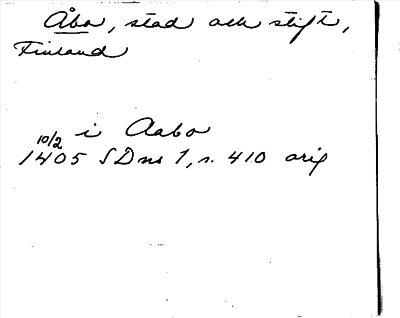 Åbo, stad och stift,
Finland
i Aabo
10/2
1405 SDns 1, s. 410 orig